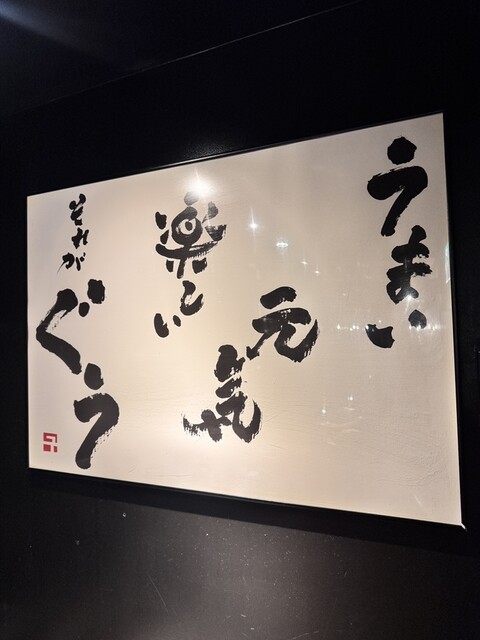 うまい
元気
楽しい
それが
ぐう